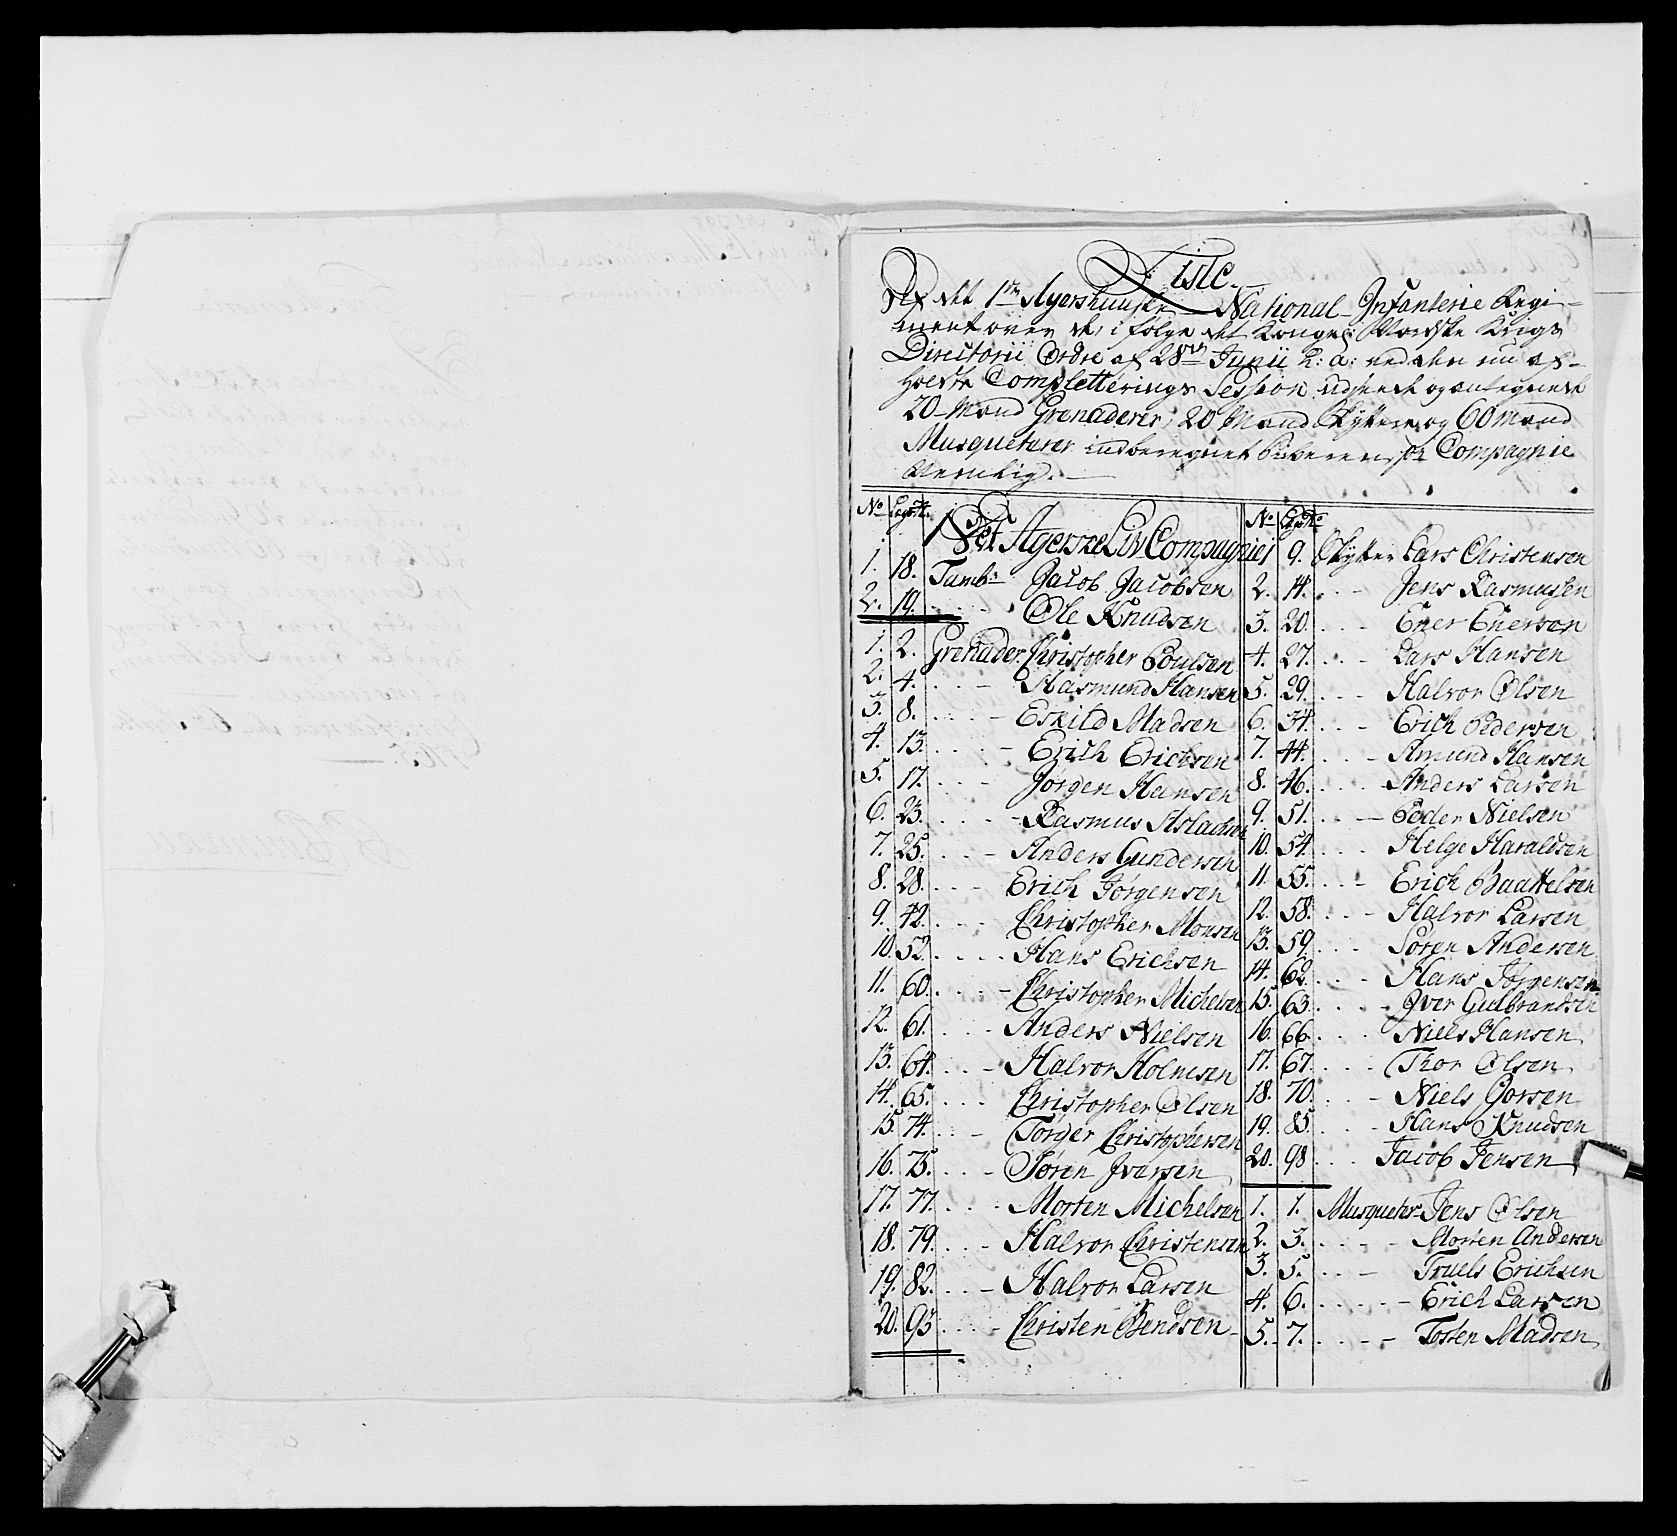 Liste
Af det 1ste Agershuuske National-Infanterie Regi-
ment over de, i følge det Kongel: Norske Krigs
Directorii Ordre af 28de Junii h: a: ved den nu af-
holdte Completterings Session udseede og antegnede
20 Mand Grenaderer, 20 Mand Skyttere og 60 Mand
Musqueterer indberegnet Piberen, for Compagnie
Nemlig. —
No Lægds No
Det Agerske Liv Compagnie
1. 18. Tamb: Jacob Jacobsen
2. 19. Ole Knudsen
1. 2. Grenader Christopher Poulsen
2. 4. Rasmund Hansen
3. 8. Eskild Madsen
4. 13. Erich Erichsen
5. 17. Jørgen Hansen
6. 23. Rasmus Aslachsen
7. 25. Anders Gundersen
8. 28. Erich Jørgensen
9. 42. Christopher Monsen
10. 52. Hans Erichsen
11. 60. Christopher Michelsen
12. 61. Anders Nielsen
13. 64. Halvor Holmsen
14. 65. Christopher Olsen
15. 74. Torger Christophersen
16. 75. Søren Iversen
17. 77. Morten Michelsen
18. 79. Halvor Christensen
19. 82. Halvor Larsen
20. 93. Christen Bendsen
No Lægds No
1. 9. Skytter Lars Christensen
2. 14. Jens Rasmusen
3. 20. Ener Enersen
4. 27. Lars Hansen
5. 29. Halvor Olsen
6. 34. Erich Pedersen
7. 44. Amund Hansen
8. 46. Anders Larsen
9. 51. Peder Nielsen
10. 54. Helge Haraldsen
11. 55. Erich Baattelsen
12. 58. Halvor Larsen
13. 59. Søren Andersen
14. 62. Hans Jørgensen
15. 63. Iver Gulbrandsen
16. 66. Niels Hansen
17. 67. Thor Olsen
18. 70. Niels Gorsen
19. 85. Hans Knudsen
20. 98 Jacob Jensen
1. 1. Musqueter Jens Olsen
2. 3. Morten Andersen
3. 5. Truels Erichsen
4. 6. Erich Larsen
5. 7. Tosten Madsen